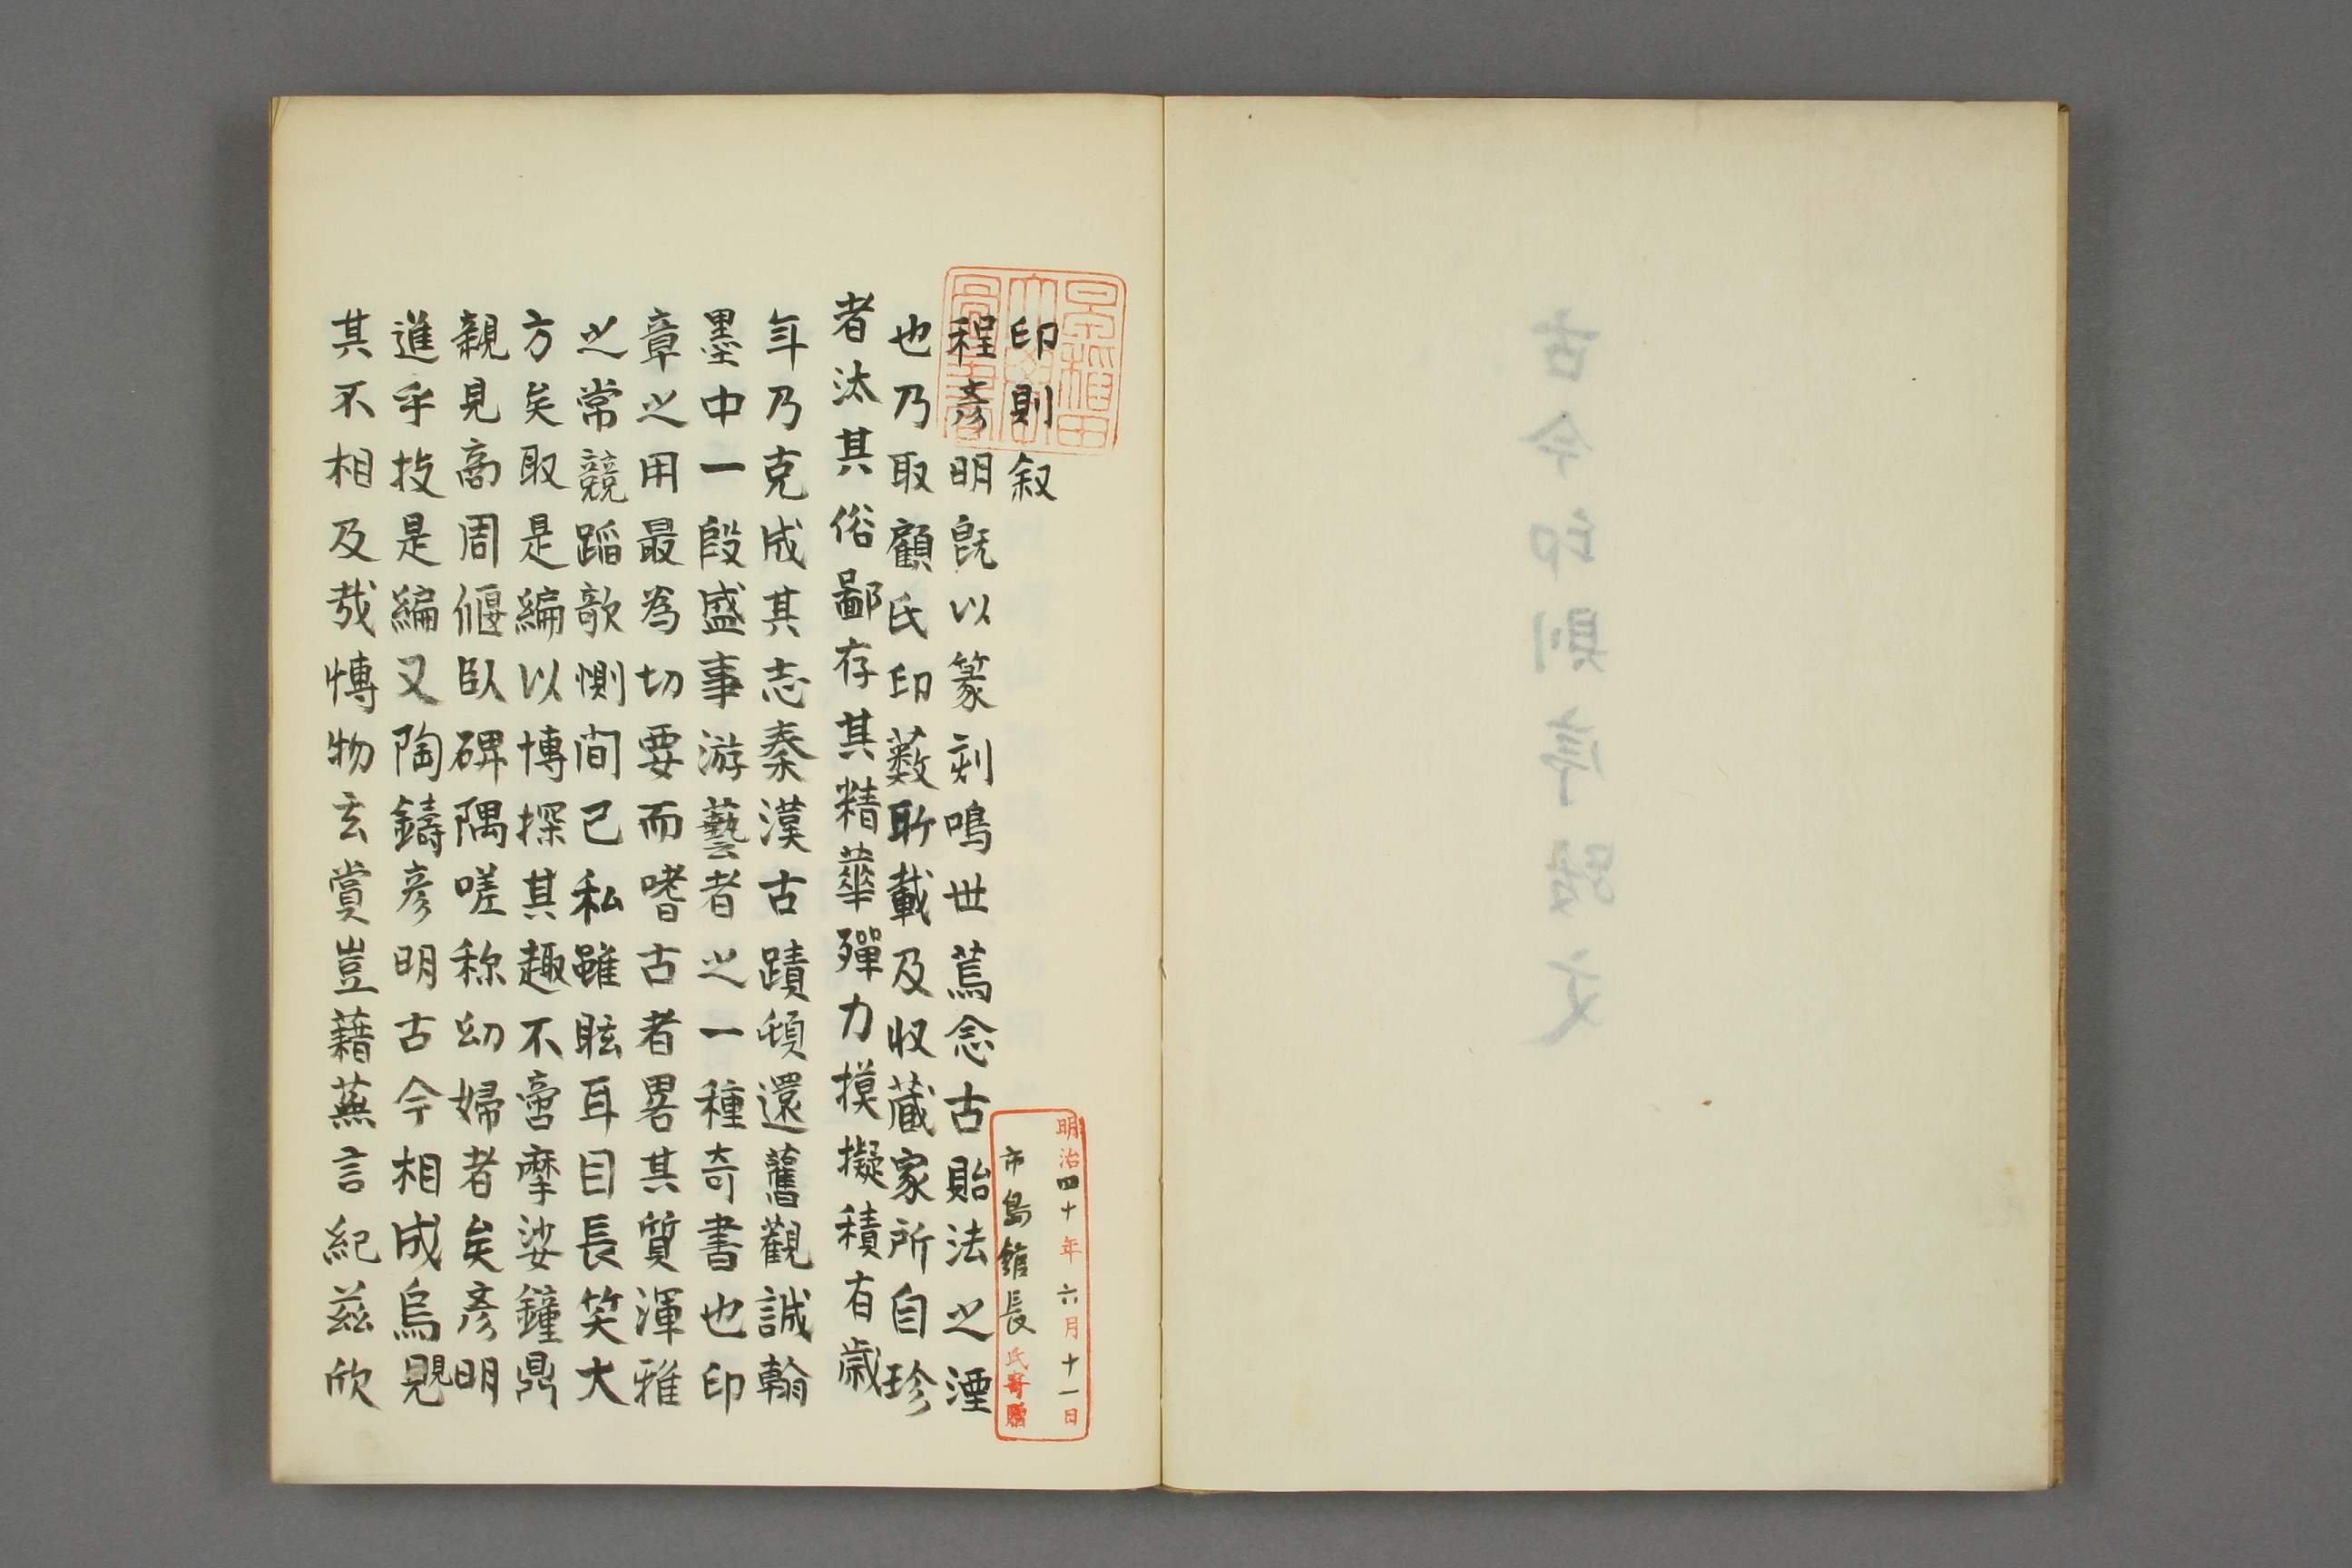 古今印則序跋文
印則叙
程彥明旣以篆刻鳴世蔫念古貽法之湮
也乃取顧氏印藪所載及収蔵家所自珍
者汰其俗鄙存其精華殫力摸擬積有歲
年乃克成其志秦漢古蹟頓還舊觀誠翰
墨中一段盛事游藝者之一種奇書也印
章之用最為切要而嗜古者畧其質渾雅
之常競蹈歌惻間已私雖眩耳目長笑大
方矣取是編以博探其趣不啻摩娑鐘鼎
親見啇周偃臥碑隅嗟称幼婦者矣彥明
進乎技是編又陶鑄彥明古今相成烏覩
其不相及哉博物玄賞豈藉蕪言紀兹欣
早稲田大學圖書
明治四十年六月十一日
市島館長氏寄贈